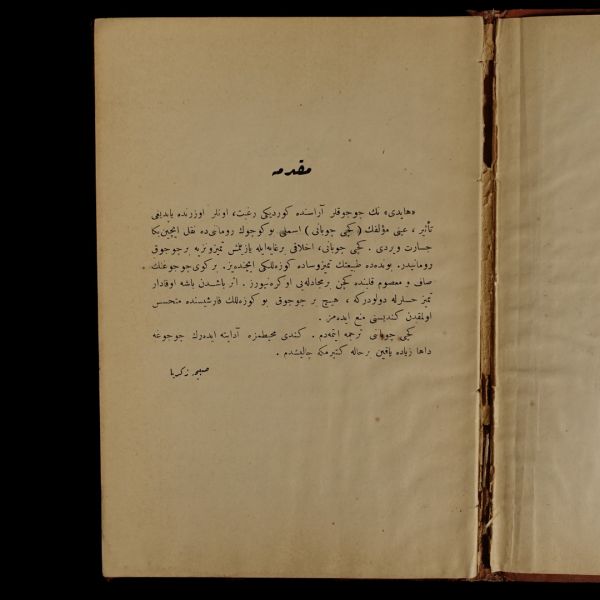 مقدمه
«هايدى» نك چوجوقلر آراسنده كورديكى رغبت، اونلر اوزرنده ياپديغى
تأثير، عينى مؤلفك (كچى چوبانى) اسملى بو كوچوك روماننى ده نقل ايچين بكا
جسارت ويردى. كچى چوبانى، اخلاقى برغايه ايله يازيلمش تميز ونزيه برچوجوق
رومانيدر. بونده ده طبيعتك تميز وساده كوزه للكى ايچنده يز. بركوى چوجوغنك
صاف و معصوم قلبنده كچن برمجادله يى اوكره نيورز. اثر باشدن باشه اوقادار
تميز حسلرله دولودركه، هيچ بر چوجوق بو كوزه للك قارشيسنده متحسس
اولمقدن كنديسنى منع ايده مز.
كچى چوبانى نى ترجمه ايتمه دم. كندى محيطمزه آداپته ايده رك چوجوغه
داها زياده ياقين برحاله كتيرمكه چاليشدم.
صبيحه زكريا